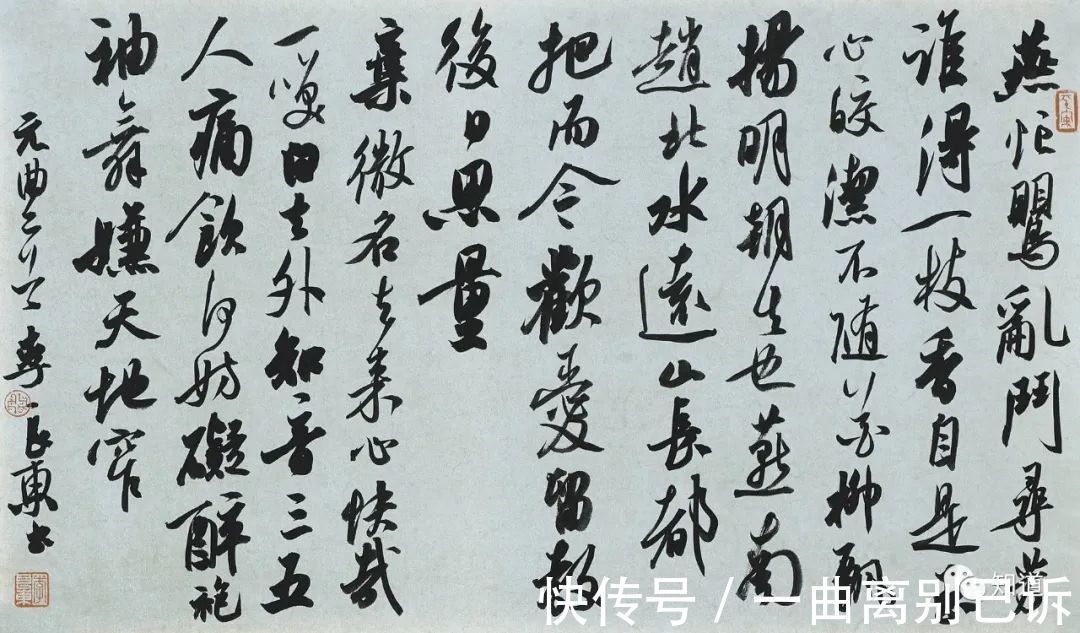 燕忙鶯亂鬥尋芳
誰得一枝香自是
心皎潔不隨花柳飄
揚明朝去也燕南
趙北水遠山長都
把而今歡愛留教
後日思量
棄微名去來心快哉
一笑白云外知音三五
人痛飲何妨礙醉袍
袖舞嫌天地窄
元曲二 長東書
知道
快传号 / 一曲离别已诉